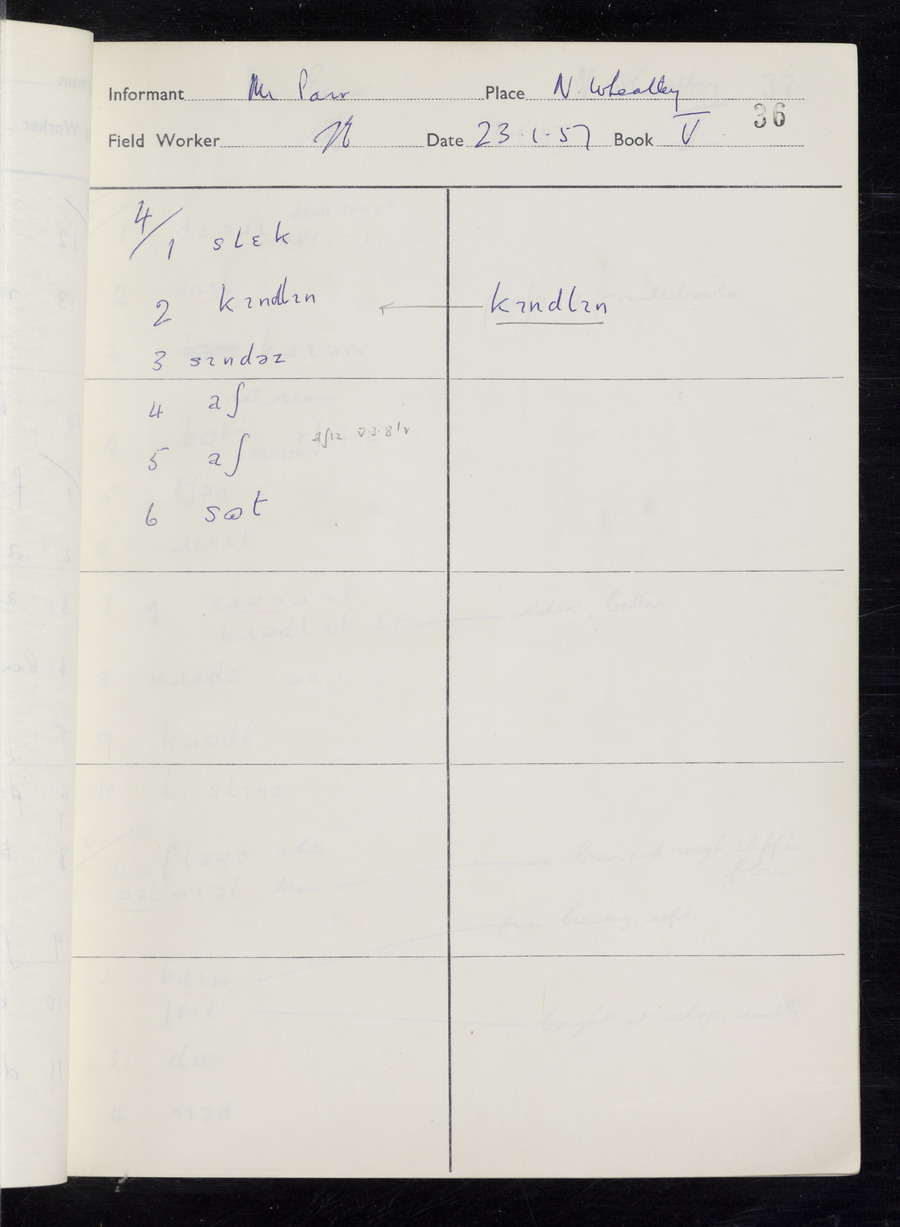 Informant Mr Parr Place N. Wheatley
36
Field Worker Date 23·1·57 Book V
4/1 slɛk
2 kɪndlɪn ← kɪndlɪn
3 sɪndəz
4 aʃ
5 aʃ
6 sɷt